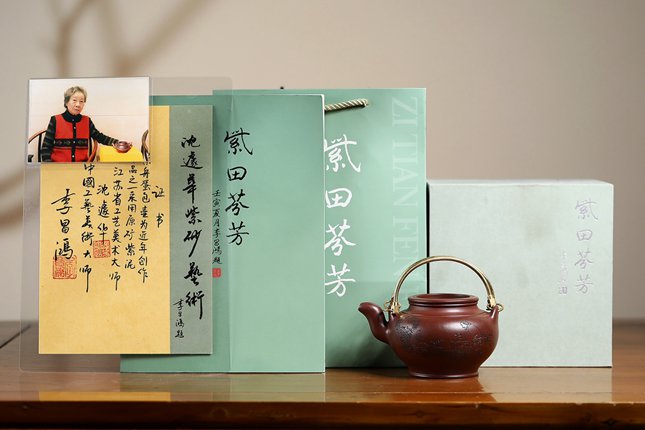 证书
包壶为近年创作
品之一采用原矿紫泥
江苏省工艺美术大师
沈遽华
中國工艺美術大师
李昌鸿
沈遽華紫砂藝術
李昌鸿题
紫田芬芳
壬寅夏月李昌鸿题
紫田芬芳
ZI TIAN FEN
紫田芬芳